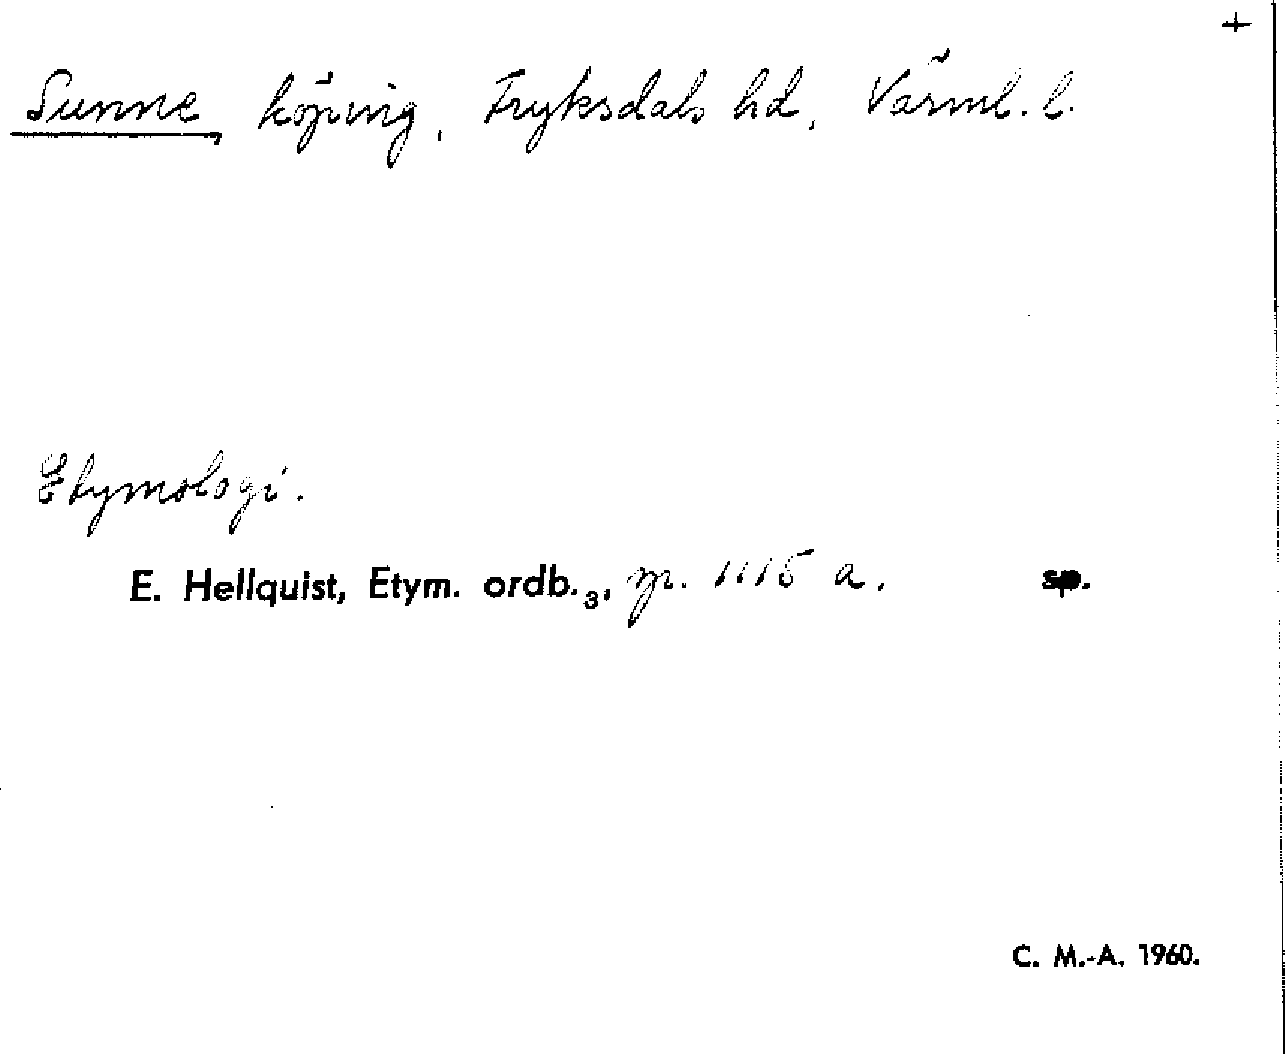 +
Sunne, köping, Fryksdals hd, Värml. l.
Etymologi.
E. Hellquist, Etym. ordb.₃, p. 1115 a. sp.
C. M.-A. 1960.